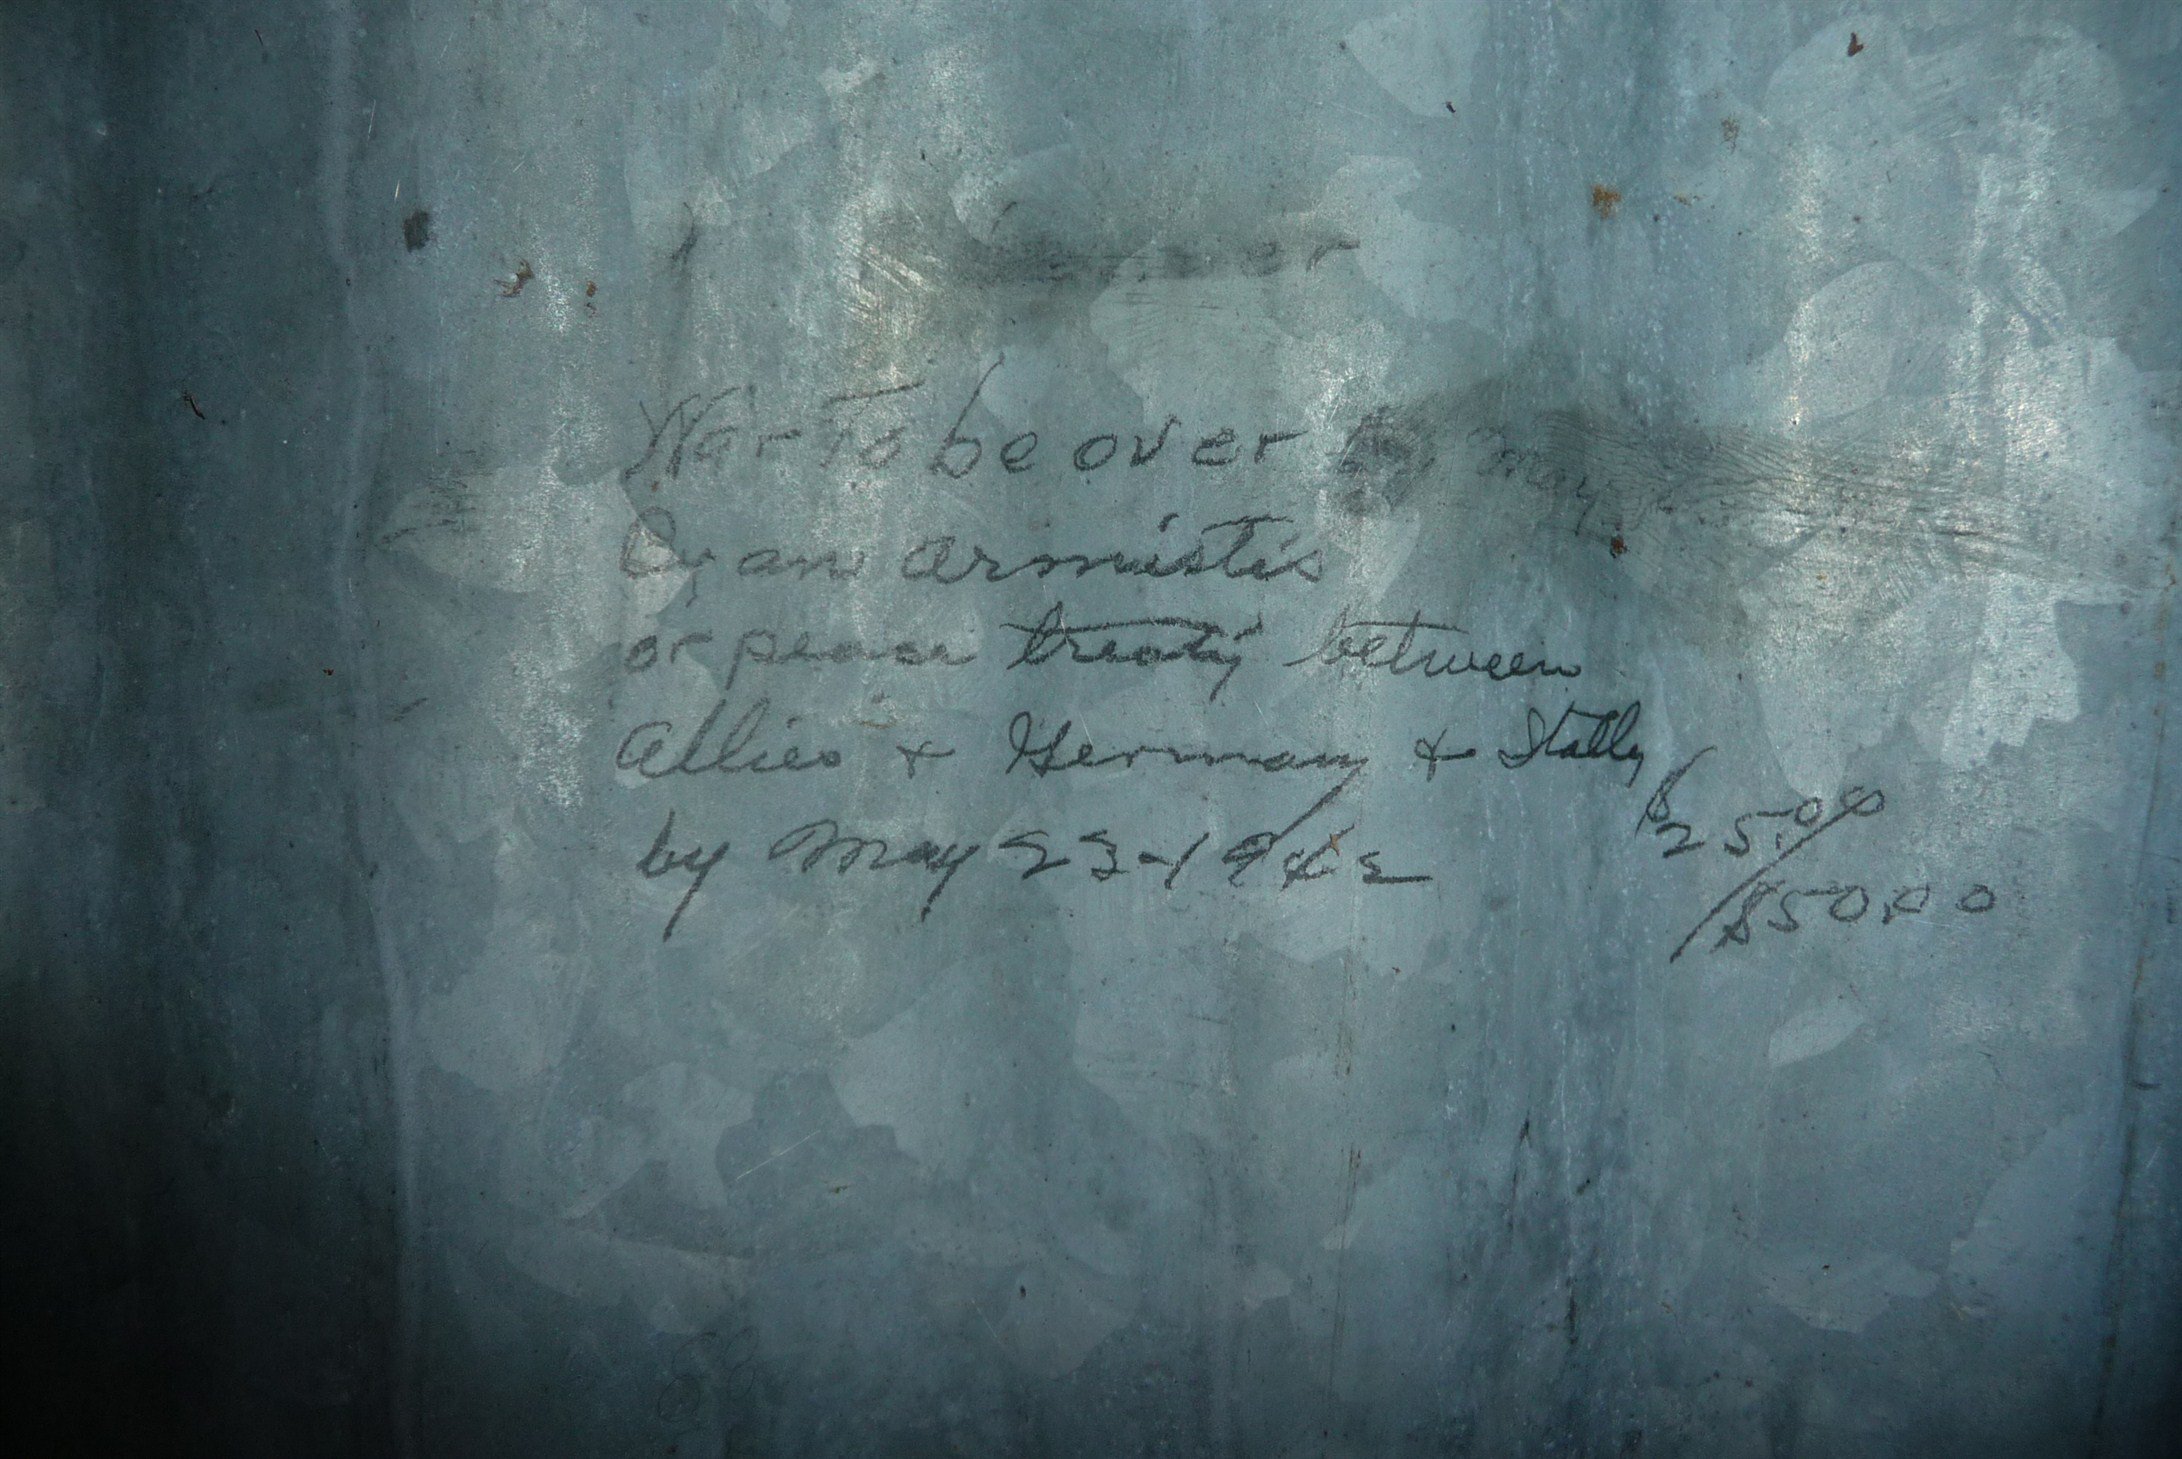 War To be over by May
By an armistis
or peace treaty between
Allies & Germany & Itally
by May 23-1942
$25.00
/$50.00